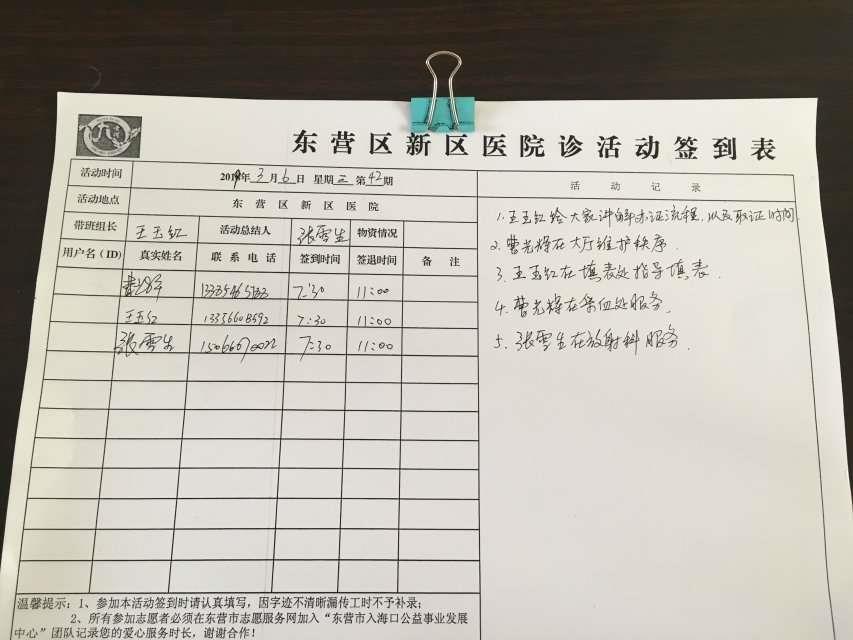 东营区新区医院诊活动签到表
活动时间 2019年3月6日 星期三 第42期
活动地点 东营区新区医院
带班组长 王玉红 活动总结人 张雪生 物资情况
用户名（ID） 真实姓名 联系电话 签到时间 签退时间 备注
7:30 11:00
王玉红 13356608592 7:30 11:00
张雪生 15066070022 7:30 11:00
活动记录
1.王玉红给大家讲解办证流程，以及取证时间
2.曹光辉在大厅维护秩序.
3.王玉红在填表处指导填表.
4.曹光辉在采血处服务.
5.张雪生在放射科服务.
温馨提示：1、参加本活动签到时请认真填写，因字迹不清晰漏传工时不予补录；
2、所有参加志愿者必须在东营市志愿服务网加入“东营市入海口公益事业发展
中心”团队记录您的爱心服务时长，谢谢合作！